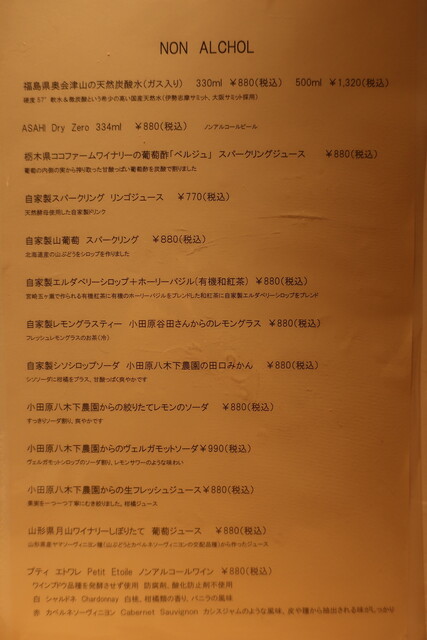 NON ALCHOL
福島県奥会津山の天然炭酸水(ガス入り) 330ml ￥880(税込) 500ml ￥1,320(税込)
硬度 57° 軟水＆微炭酸という希少の高い国産天然水(伊勢志摩サミット、大阪サミット採用)
ASAHI Dry Zero 334ml ￥880(税込) ノンアルコールビール
栃木県ココファームワイナリーの葡萄酢「ベルジュ」 スパークリングジュース ￥880(税込)
葡萄の内側の炭から搾り取った甘酸っぱい葡萄酢を炭酸で割りました
自家製スパークリング リンゴジュース ￥770(税込)
天然酵母使用した自家製ドリンク
自家製山葡萄 スパークリング ￥880(税込)
北海道産の山ぶどうをシロップを作りました
自家製エルダベリーシロップ＋ホーリーバジル(有機和紅茶) ￥880(税込)
宮崎五ヶ瀬で作られる有機紅茶に有機のホーリーバジルをブレンドした和紅茶に自家製エルダベリーシロップをブレンド
自家製レモングラスティー 小田原谷田さんからのレモングラス ￥880(税込)
フレッシュレモングラスのお茶(冷)
自家製シソシロップソーダ 小田原八木下農園の田口みかん ￥880(税込)
シソソーダに柑橘をプラス、甘酸っぱく爽やかです
小田原八木下農園からの絞りたてレモンのソーダ ￥880(税込)
すっきりソーダ割り、爽やかです
小田原八木下農園からのヴェルガモットソーダ￥990(税込)
ヴェルガモットシロップのソーダ割り、レモンサワーのような味わい
小田原八木下農園からの生フレッシュジュース￥880(税込)
果実を一つ一つ丁寧にむき絞りました、柑橘ジュース
山形県月山ワイナリーしぼりたて 葡萄ジュース ￥880(税込)
山形県産ヤマソーヴィニヨン種(山ぶどうとカベルネソーヴィニヨンの交配品種)から作ったジュース
プティ エトワレ Petit Etoile ノンアルコールワイン ￥880(税込)
ワインブドウ品種を発酵させず使用 防腐剤、酸化防止剤不使用
白 シャルドネ Chardonnay 白桃、柑橘類の香り、バニラの風味
赤 カベルネソーヴィニヨン Cabernet Sauvignon カシスジャムのような風味、皮や種から抽出される味がしっかり